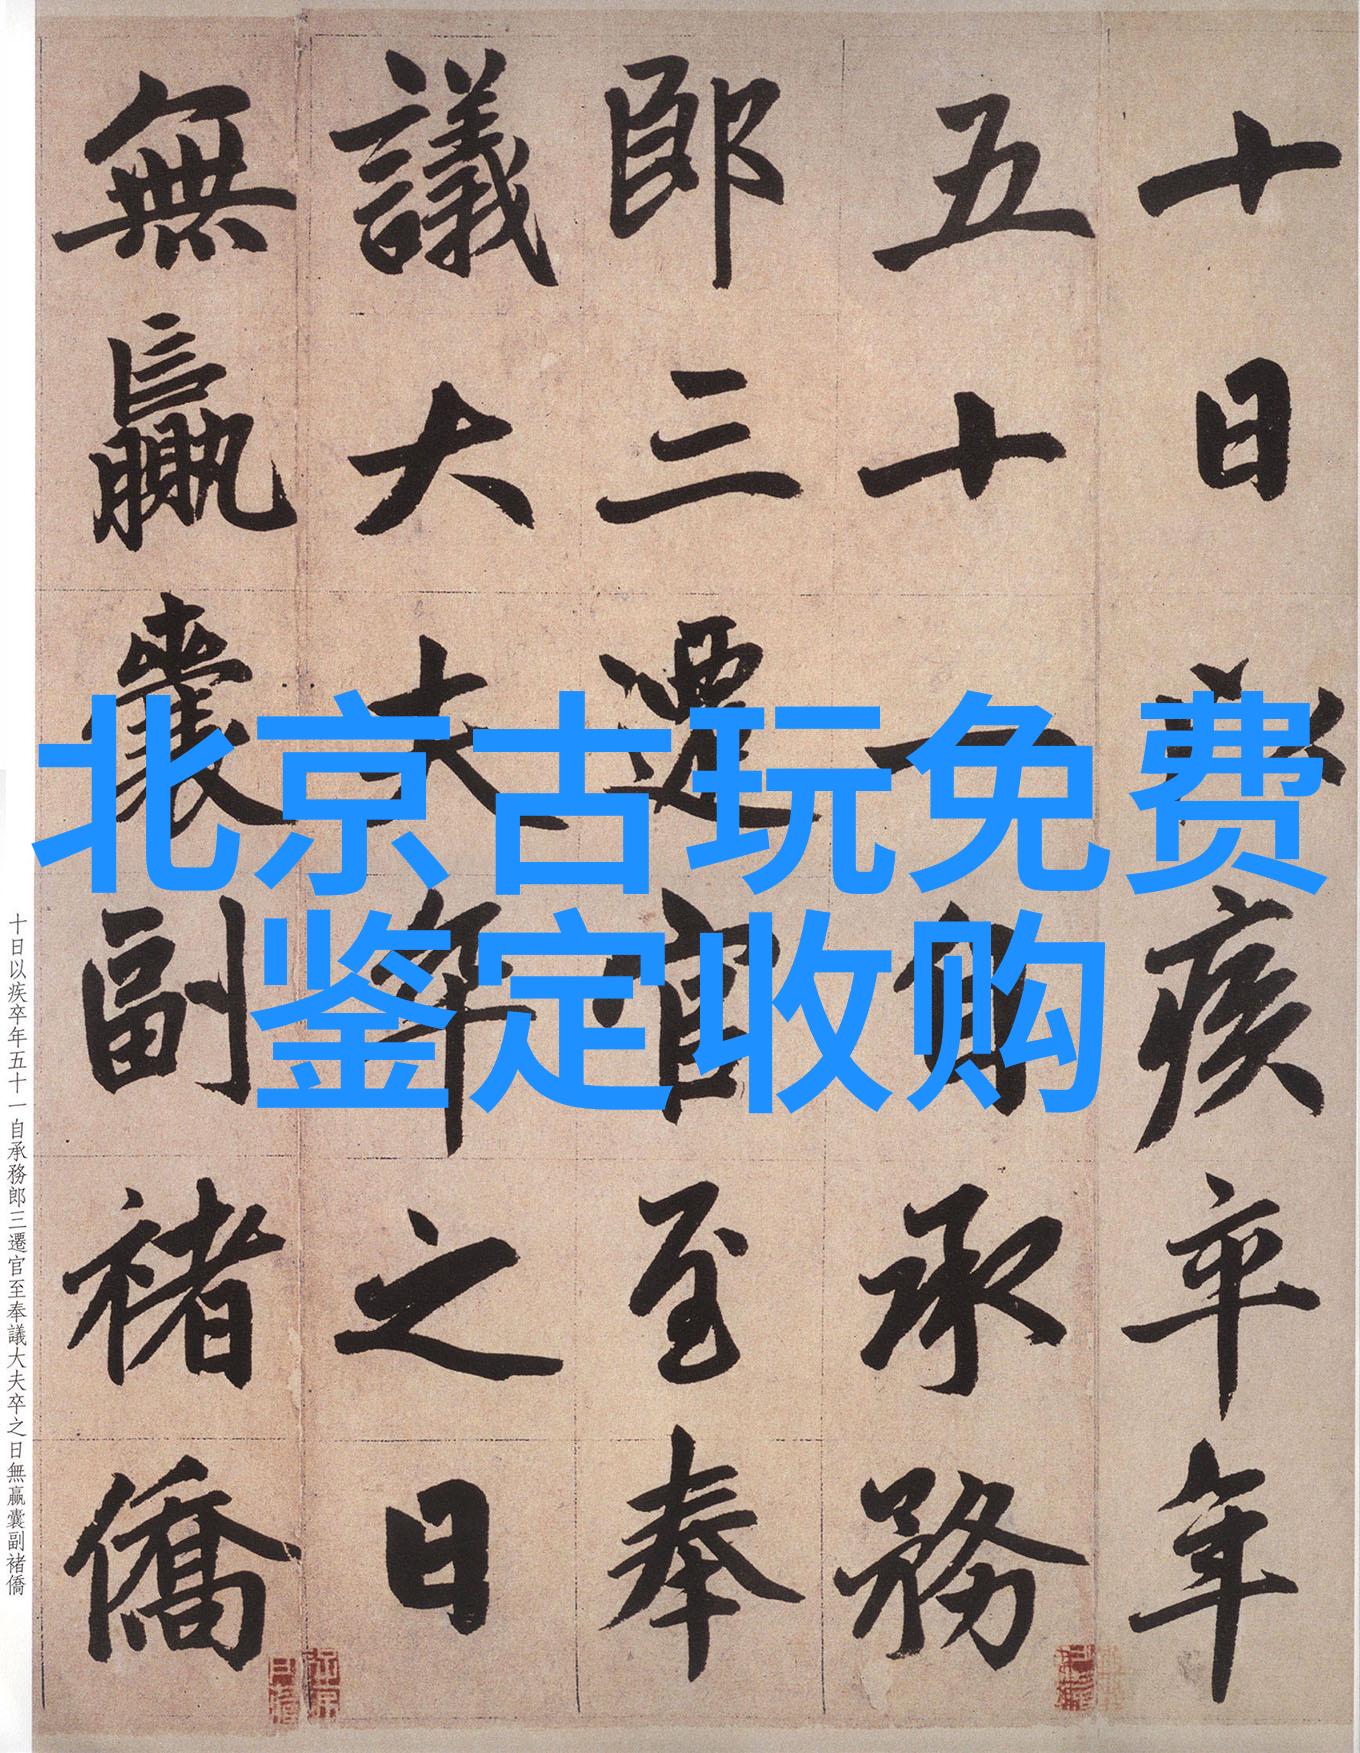 北京古玩免费
鉴定收购
十日以疾卒年
五十一自承務
郎三遷官至奉
議大夫卒之日
無贏囊副褚僑
十日以疾卒年五十一自承務郎三遷官至奉議大夫卒之日無贏囊副褚僑